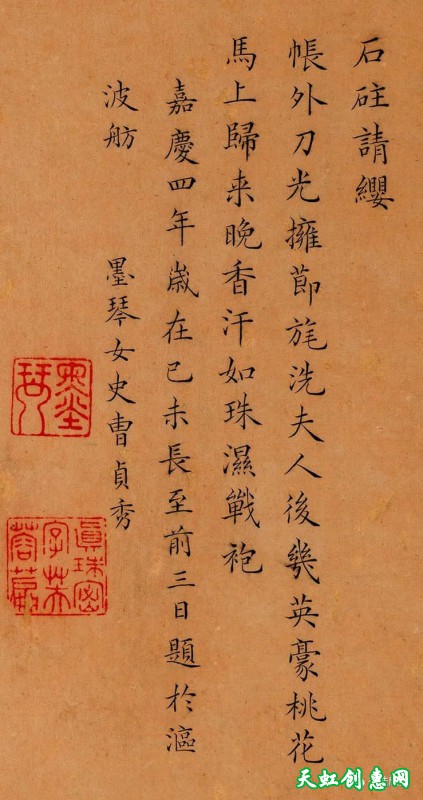 石砫請纓
帳外刀光擁節旄洗夫人後幾英豪桃花
馬上歸来晚香汗如珠濕戰袍
嘉慶四年歲在己未長至前三日題於漚
波舫
墨琴女史曹貞秀
墨琴
真珠密字芙蓉篆
天虹创惠网